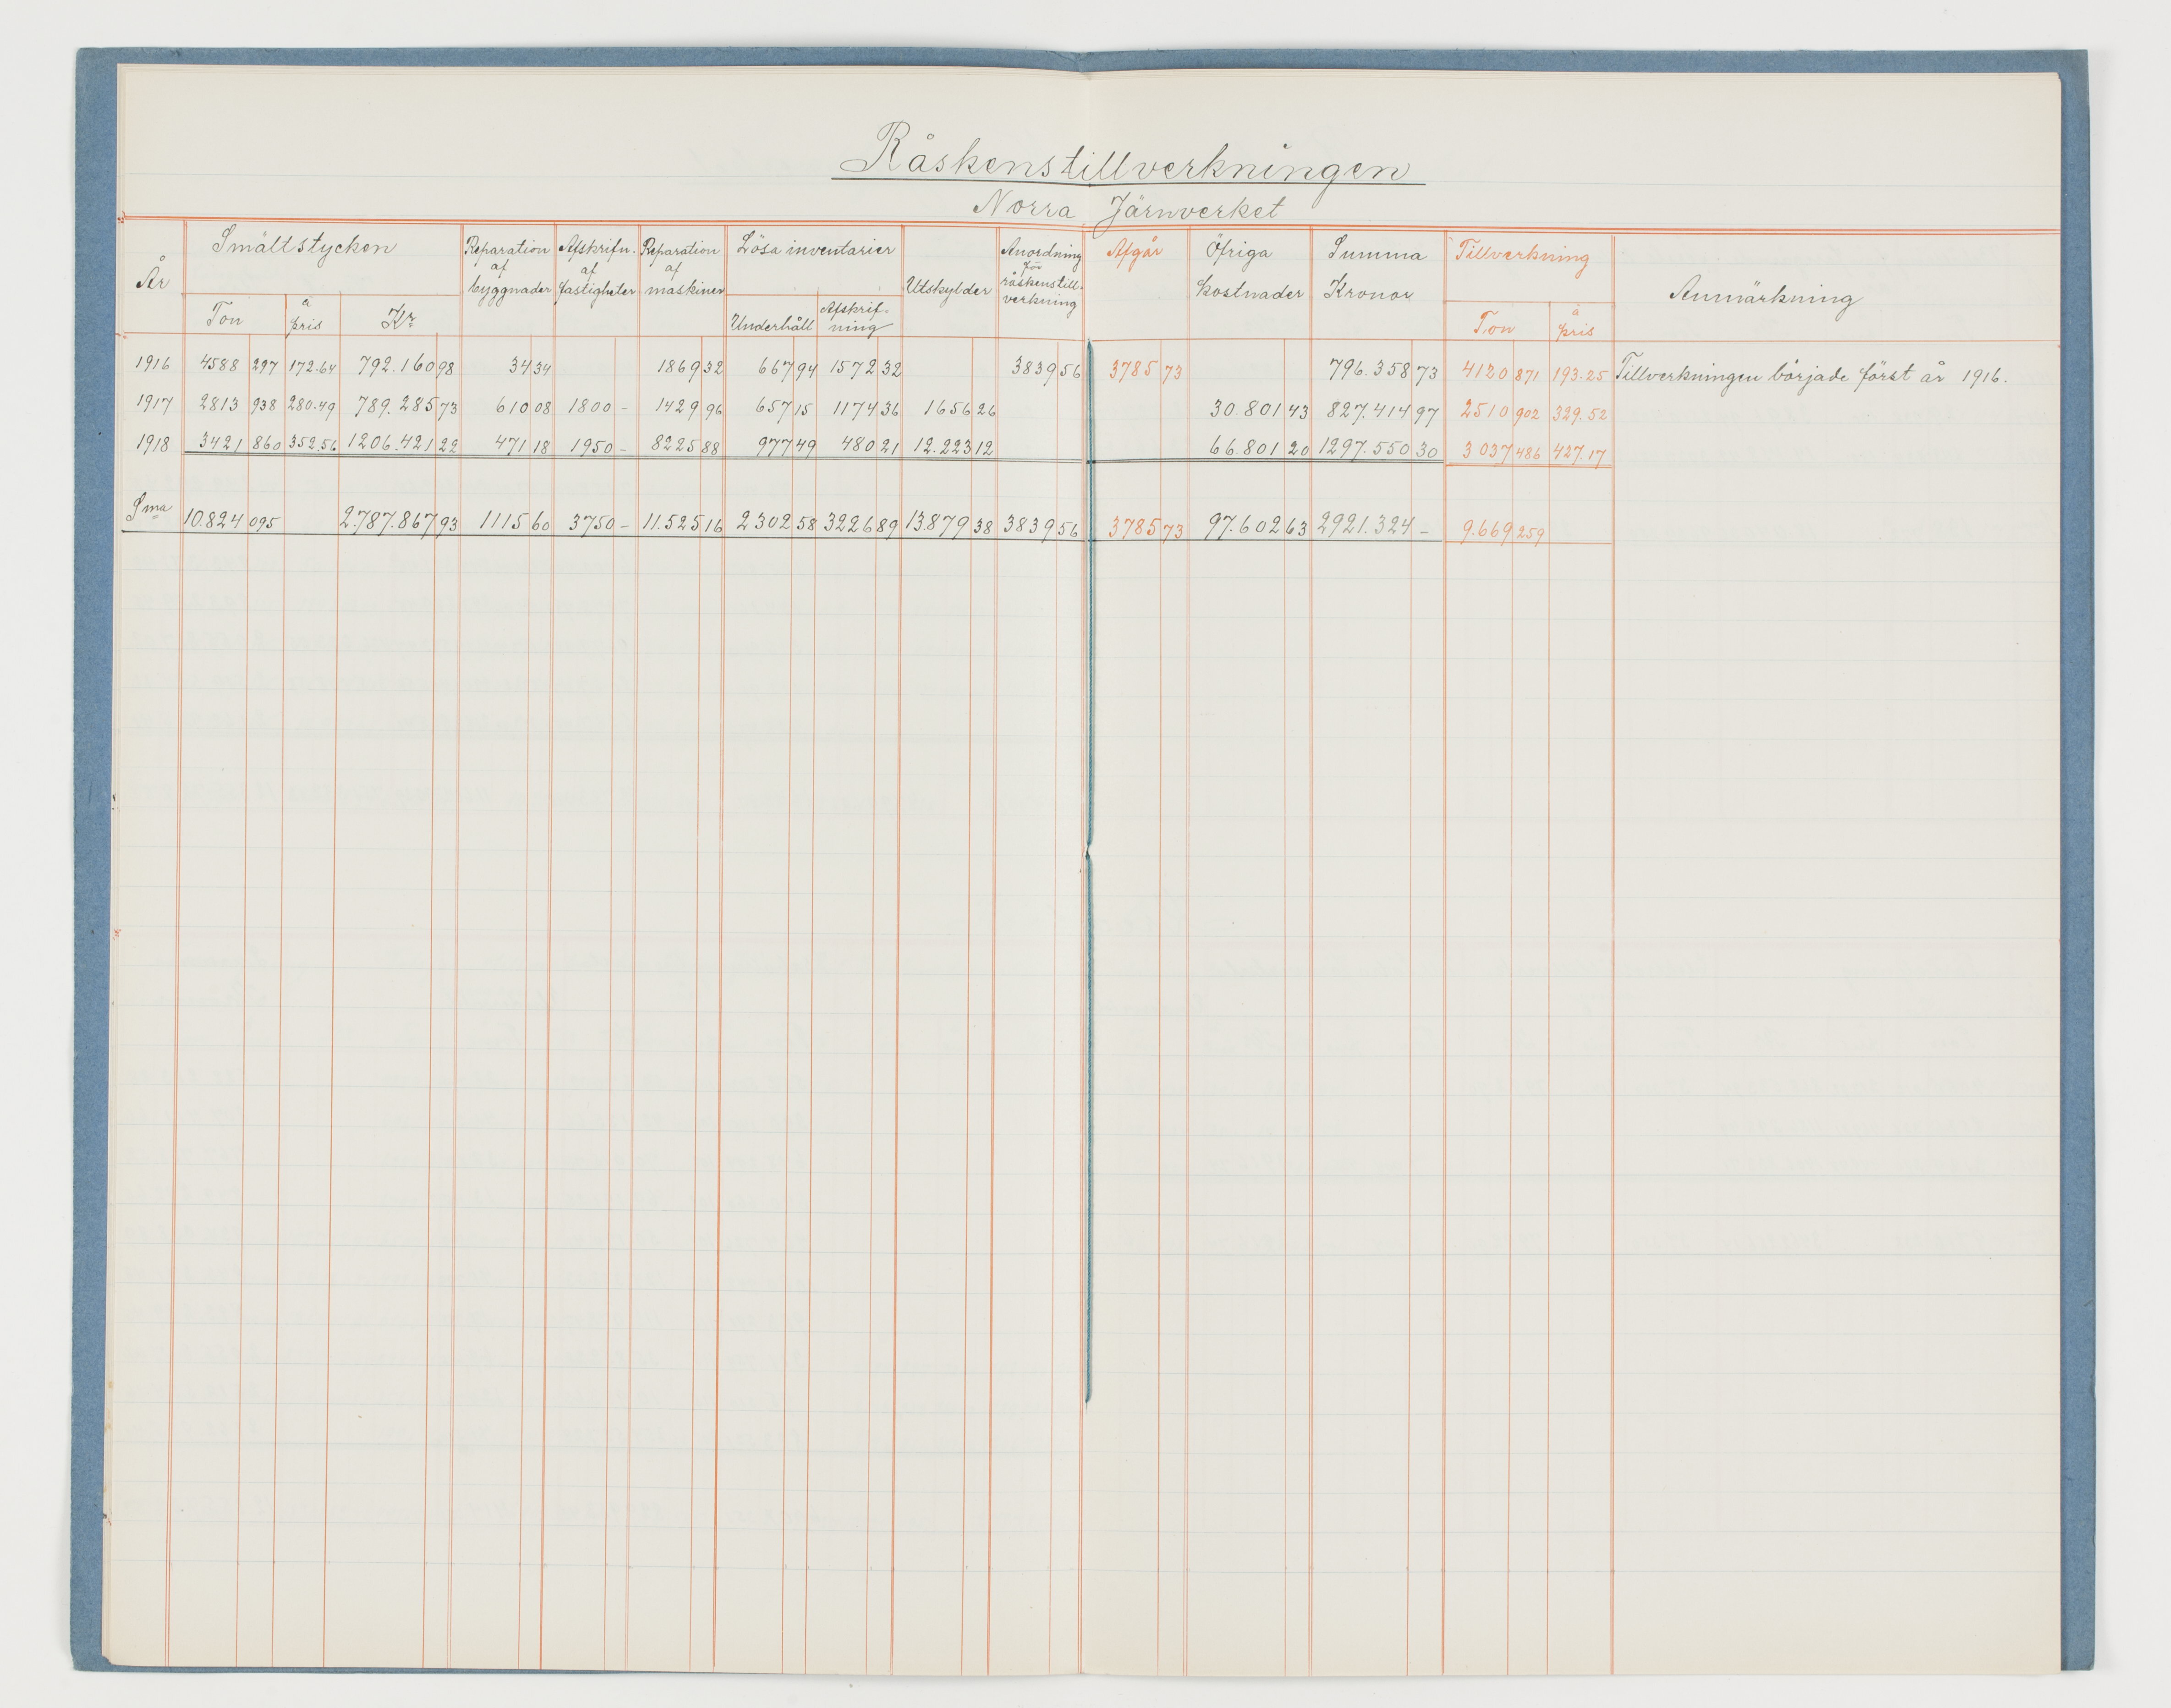 Råskenstillverkningen
Norra Järnverket
År Smältstycken Reparation af byggnader Afskrifn. af fastigheter Reparation af maskiner Lösa inventarier Utskylder Anordning för råskenstill- verkning Afgår Öfriga kostnader Summa Kronor Tillverkning Anmärkning
Ton à pris Kr Underhåll Afskrif- ning Ton à pris
1916 4588 297 172.64 792.160 98 34 34 1869 32 667 94 1572 32 3839 56 3785 73 796.358 73 4120 871 193.25 Tillverkningen började först år 1916.
1917 2813 938 280.49 789.285 73 610 08 1800 - 1429 96 657 15 1174 36 1656 26 30.801 43 827.414 97 2510 902 329.52
1918 3421 860 352.56 1206.421 22 471 18 1950 - 8225 88 977 49 480 21 12.223 12 66.801 20 1297.550 30 3037 486 427.17
Sma 10.824 095 2.787.867 93 1115 60 3750 - 11.525 16 2302 58 3226 89 13.879 38 3839 56 3785 73 97.602 63 2921.324 - 9.669 259